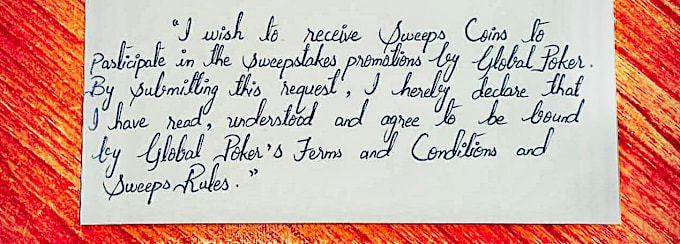 "I wish to receive Sweeps Coins to
Participate in the sweepstakes promotions by Global Poker.
By submitting this request, I hereby declare that
I have read, understood and agree to be bound
by Global Poker's Terms and Conditions and
Sweeps Rules."